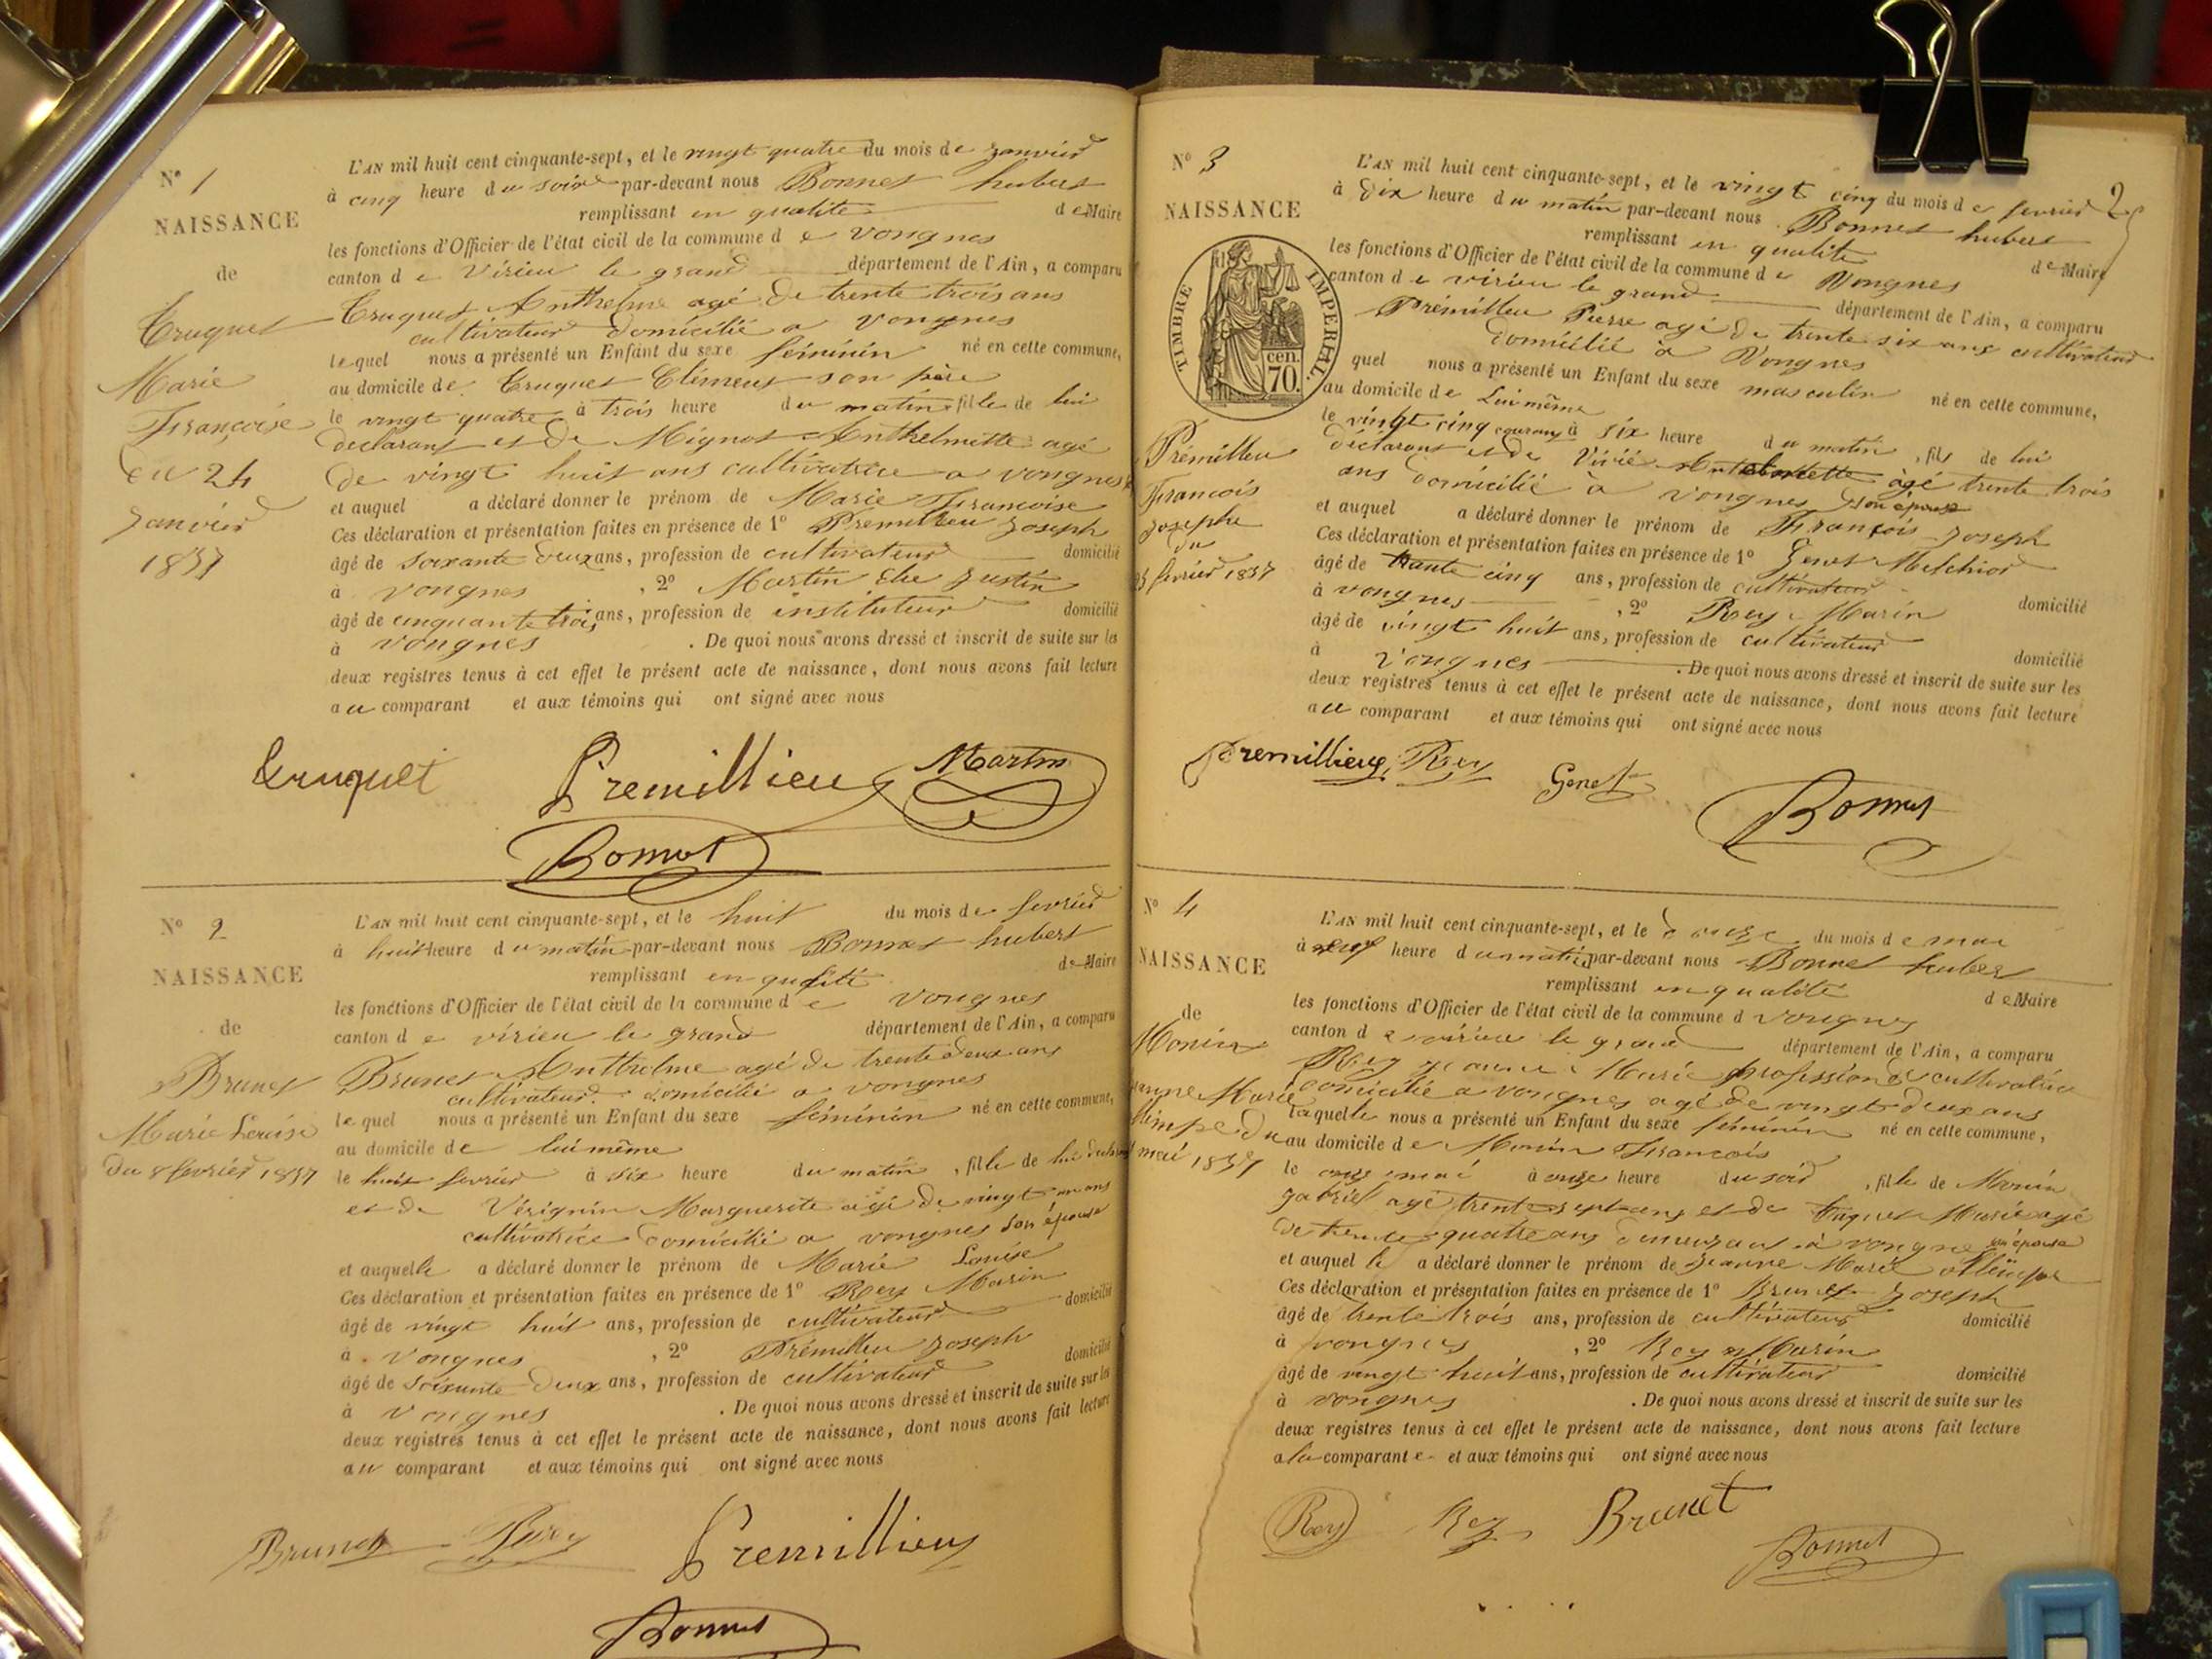 N° 1
NAISSANCE
de
Truquet
Marie
Françoise
du 24
janvier
1857
L'AN mil huit cent cinquante-sept, et le vingt quatre du mois de janvier
à cinq heure du soir par-devant nous Bonnet hubert
remplissant en qualité de Maire
les fonctions d'Officier de l'état civil de la commune de vongnes
canton de Virieu le grand département de l'Ain, a comparu
Truquet Anthelme agé de trente trois ans
cultivateur domicilié a vongnes
lequel nous a présenté un Enfant du sexe féminin né en cette commune,
au domicile de Truquet Clément son père
le vingt quatre à trois heure du matin fille de lui
déclarant et de Mignot Anthelmette agé
de vingt huit ans cultivatrice a vongnes
et auquel a déclaré donner le prénom de Marie Françoise
Ces déclaration et présentation faites en présence de 1° Premillieu Joseph
âgé de soixante deux ans, profession de cultivateur domicilié
à vongnes , 2° Martin Justin
âgé de cinquante trois ans, profession de instituteur domicilié
à vongnes . De quoi nous avons dressé et inscrit de suite sur les
deux registres tenus à cet effet le présent acte de naissance, dont nous avons fait lecture
au comparant et aux témoins qui ont signé avec nous
truquet Premillieu Martin
Bonnet
N° 2
NAISSANCE
de
Brunet
Marie Louise
du 8 fevrier 1857
L'AN mil huit cent cinquante-sept, et le huit du mois de fevrier
à huit heure du matin par-devant nous Bonnet hubert
remplissant en qualité de Maire
les fonctions d'Officier de l'état civil de la commune de vongnes
canton de virieu le grand département de l'Ain, a comparu
Brunet Anthelme agé de trente deux ans
cultivateur domicilié a vongnes
lequel nous a présenté un Enfant du sexe féminin né en cette commune,
au domicile de lui même
le huit fevrier à six heure du matin , fille de lui
et de Vérignin Marguerite agé de vingt un ans
cultivatrice domicilié a vongnes son épouse
et auquelle a déclaré donner le prénom de Marie Louise
Ces déclaration et présentation faites en présence de 1° Rey Marin
âgé de vingt huit ans, profession de cultivateur domicilié
à vongnes , 2° Prémilleu Joseph
âgé de soixante deux ans, profession de cultivateur domicilié
à vongnes . De quoi nous avons dressé et inscrit de suite sur les
deux registres tenus à cet effet le présent acte de naissance, dont nous avons fait lecture
au comparant et aux témoins qui ont signé avec nous
Brunet Rey Premillieu
Bonnet
2
N° 3
NAISSANCE
TIMBRE IMPERIAL.
cen.
70.
Prémilleu
François
Joseph
du
25 fevrier 1857
L'AN mil huit cent cinquante-sept, et le vingt cinq du mois de fevrier
à dix heure du matin par-devant nous Bonnet hubert
remplissant en qualité de Maire
les fonctions d'Officier de l'état civil de la commune de Vongnes
canton de virieu le grand département de l'Ain, a comparu
Prémilleu Pierre agé de trente six ans cultivateur
domicilié à Vongnes
quel nous a présenté un Enfant du sexe masculin né en cette commune,
au domicile de Lui même
le vingt cinq courant à six heure du matin , fils de lui
déclarant et de agé trente trois
ans domicilié à vongnes son épouse
et auquel a déclaré donner le prénom de François Joseph
Ces déclaration et présentation faites en présence de 1° Genet Melchior
âgé de trante cinq ans, profession de cultivateur
à vongnes , 2° Rey Marin domicilié
âgé de vingt huit ans, profession de cultivateur
à Vongnes domicilié
. De quoi nous avons dressé et inscrit de suite sur les
deux registres tenus à cet effet le présent acte de naissance, dont nous avons fait lecture
au comparant et aux témoins qui ont signé avec nous
Premillieux Rey Genet
Bonnet
N° 4
NAISSANCE
de
Monin
Jeanne Marie
du
mai 1857
L'AN mil huit cent cinquante-sept, et le douze du mois de mai
à heure du matin par-devant nous Bonnet huber
remplissant en qualité de Maire
les fonctions d'Officier de l'état civil de la commune d vongnes
canton de virieu le grand département de l'Ain, a comparu
Rey Jeanne Marie profession de cultivatrice
domicilié a vongnes agé de vingt deux ans
laquelle nous a présenté un Enfant du sexe féminin né en cette commune,
au domicile de Monin François
le onze mai à onze heure du soir , fille de Monin
gabriel agé trente sept ans et de truquet Marie agé
de trente quatre ans demeurant à vongne son epouse
et auquel le a déclaré donner le prénom de Jeanne Marie
Ces déclaration et présentation faites en présence de 1° Brunet Joseph
âgé de trente trois ans, profession de cultivateur domicilié
à vongnes , 2° Rey Marin
âgé de vingt huit ans, profession de cultivateur domicilié
à vongnes . De quoi nous avons dressé et inscrit de suite sur les
deux registres tenus à cet effet le présent acte de naissance, dont nous avons fait lecture
a la comparante et aux témoins qui ont signé avec nous
Rey Rey Brunet
Bonnet